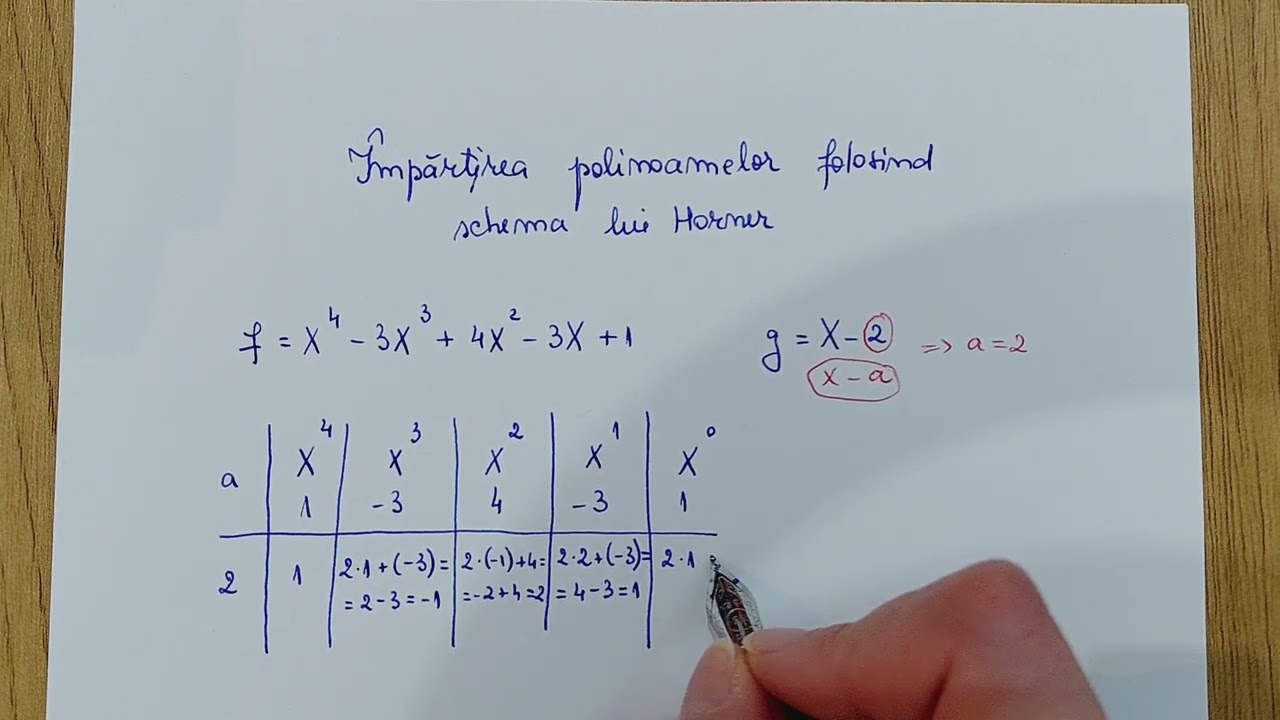 Împărțirea polinoamelor folosind
schema lui Horner
f = X⁴ - 3X³ + 4X² - 3X + 1
g = X - 2 => a = 2
X - a
a X⁴ X³ X² X¹ X⁰
1 -3 4 -3 1
2 1 2·1+(-3)= 2·(-1)+4= 2·2+(-3)= 2·1
=2-3=-1 =-2+4=2 =4-3=1